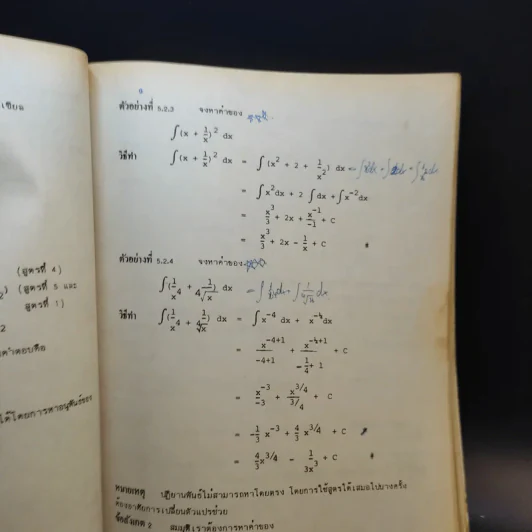 เชียล
(สูตรที่ 4)
(สูตรที่ 5 และ
สูตรที่ 1)
2
คำตอบคือ
ได้โดยการหาอนุพันธ์ของ
8
ตัวอย่างที่ 5.2.3 จงหาค่าของ
∫(x + 1/x)² dx
วิธีทำ ∫(x + 1/x)² dx = ∫(x² + 2 + 1/x²) dx
= ∫x²dx + 2 ∫dx + ∫x⁻²dx
= x³/3 + 2x + x⁻¹/-1 + C
= x³/3 + 2x - 1/x + C
ตัวอย่างที่ 5.2.4 จงหาค่าของ
∫(1/x⁴ + 1/⁴√x) dx
วิธีทำ ∫(1/x⁴ + 1/⁴√x) dx = ∫x⁻⁴ dx + x^-¼dx
= x⁻⁴⁺¹/-4+1 + x^-¼+1/-¼+1 + C
= x⁻³/-3 + x^3/4/3/4 + C
= -1/3 x⁻³ + 4/3 x^3/4 + C
= 4/3 x^3/4 - 1/3x³ + C
หมายเหตุ ปฏิยานุพันธ์ไม่สามารถหาโดยตรง โดยการใช้สูตรได้เสมอไปบางครั้ง
ต้องอาศัยการเปลี่ยนตัวแปรช่วย
ข้อสังเกต 2 สมมุติเราต้องการหาค่าของ